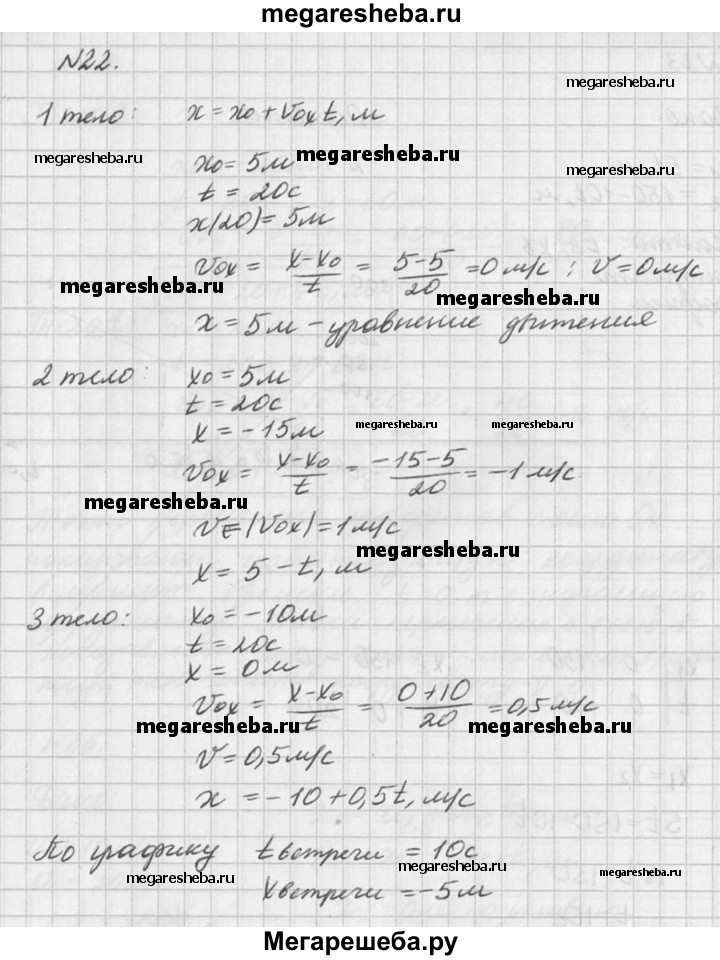 megaresheba.ru
N22.
megaresheba.ru
1 тело: x = x₀ + v₀ₓt, м
megaresheba.ru
x₀ = 5м
megaresheba.ru
megaresheba.ru
t = 20с
x(20) = 5м
vox = x-x₀/t = 5-5/20 = 0 м/с ; v = 0м/с
megaresheba.ru
megaresheba.ru
x = 5м - уравнение движения
2 тело: x₀ = 5м
t = 20с
x = -15м
megaresheba.ru
megaresheba.ru
vox = x-x₀/t = -15-5/20 = -1 м/с
megaresheba.ru
v = |vox| = 1м/с
megaresheba.ru
x = 5 - t, м
3 тело: x₀ = -10м
t = 20с
x = 0м
vox = x-x₀/t = 0+10/20 = 0,5 м/с
megaresheba.ru
megaresheba.ru
v = 0,5м/с
x = -10 + 0,5t, м/с
По графику t встречи = 10с
megaresheba.ru
megaresheba.ru
megaresheba.ru
x встречи = -5м
Мегарешеба.ру